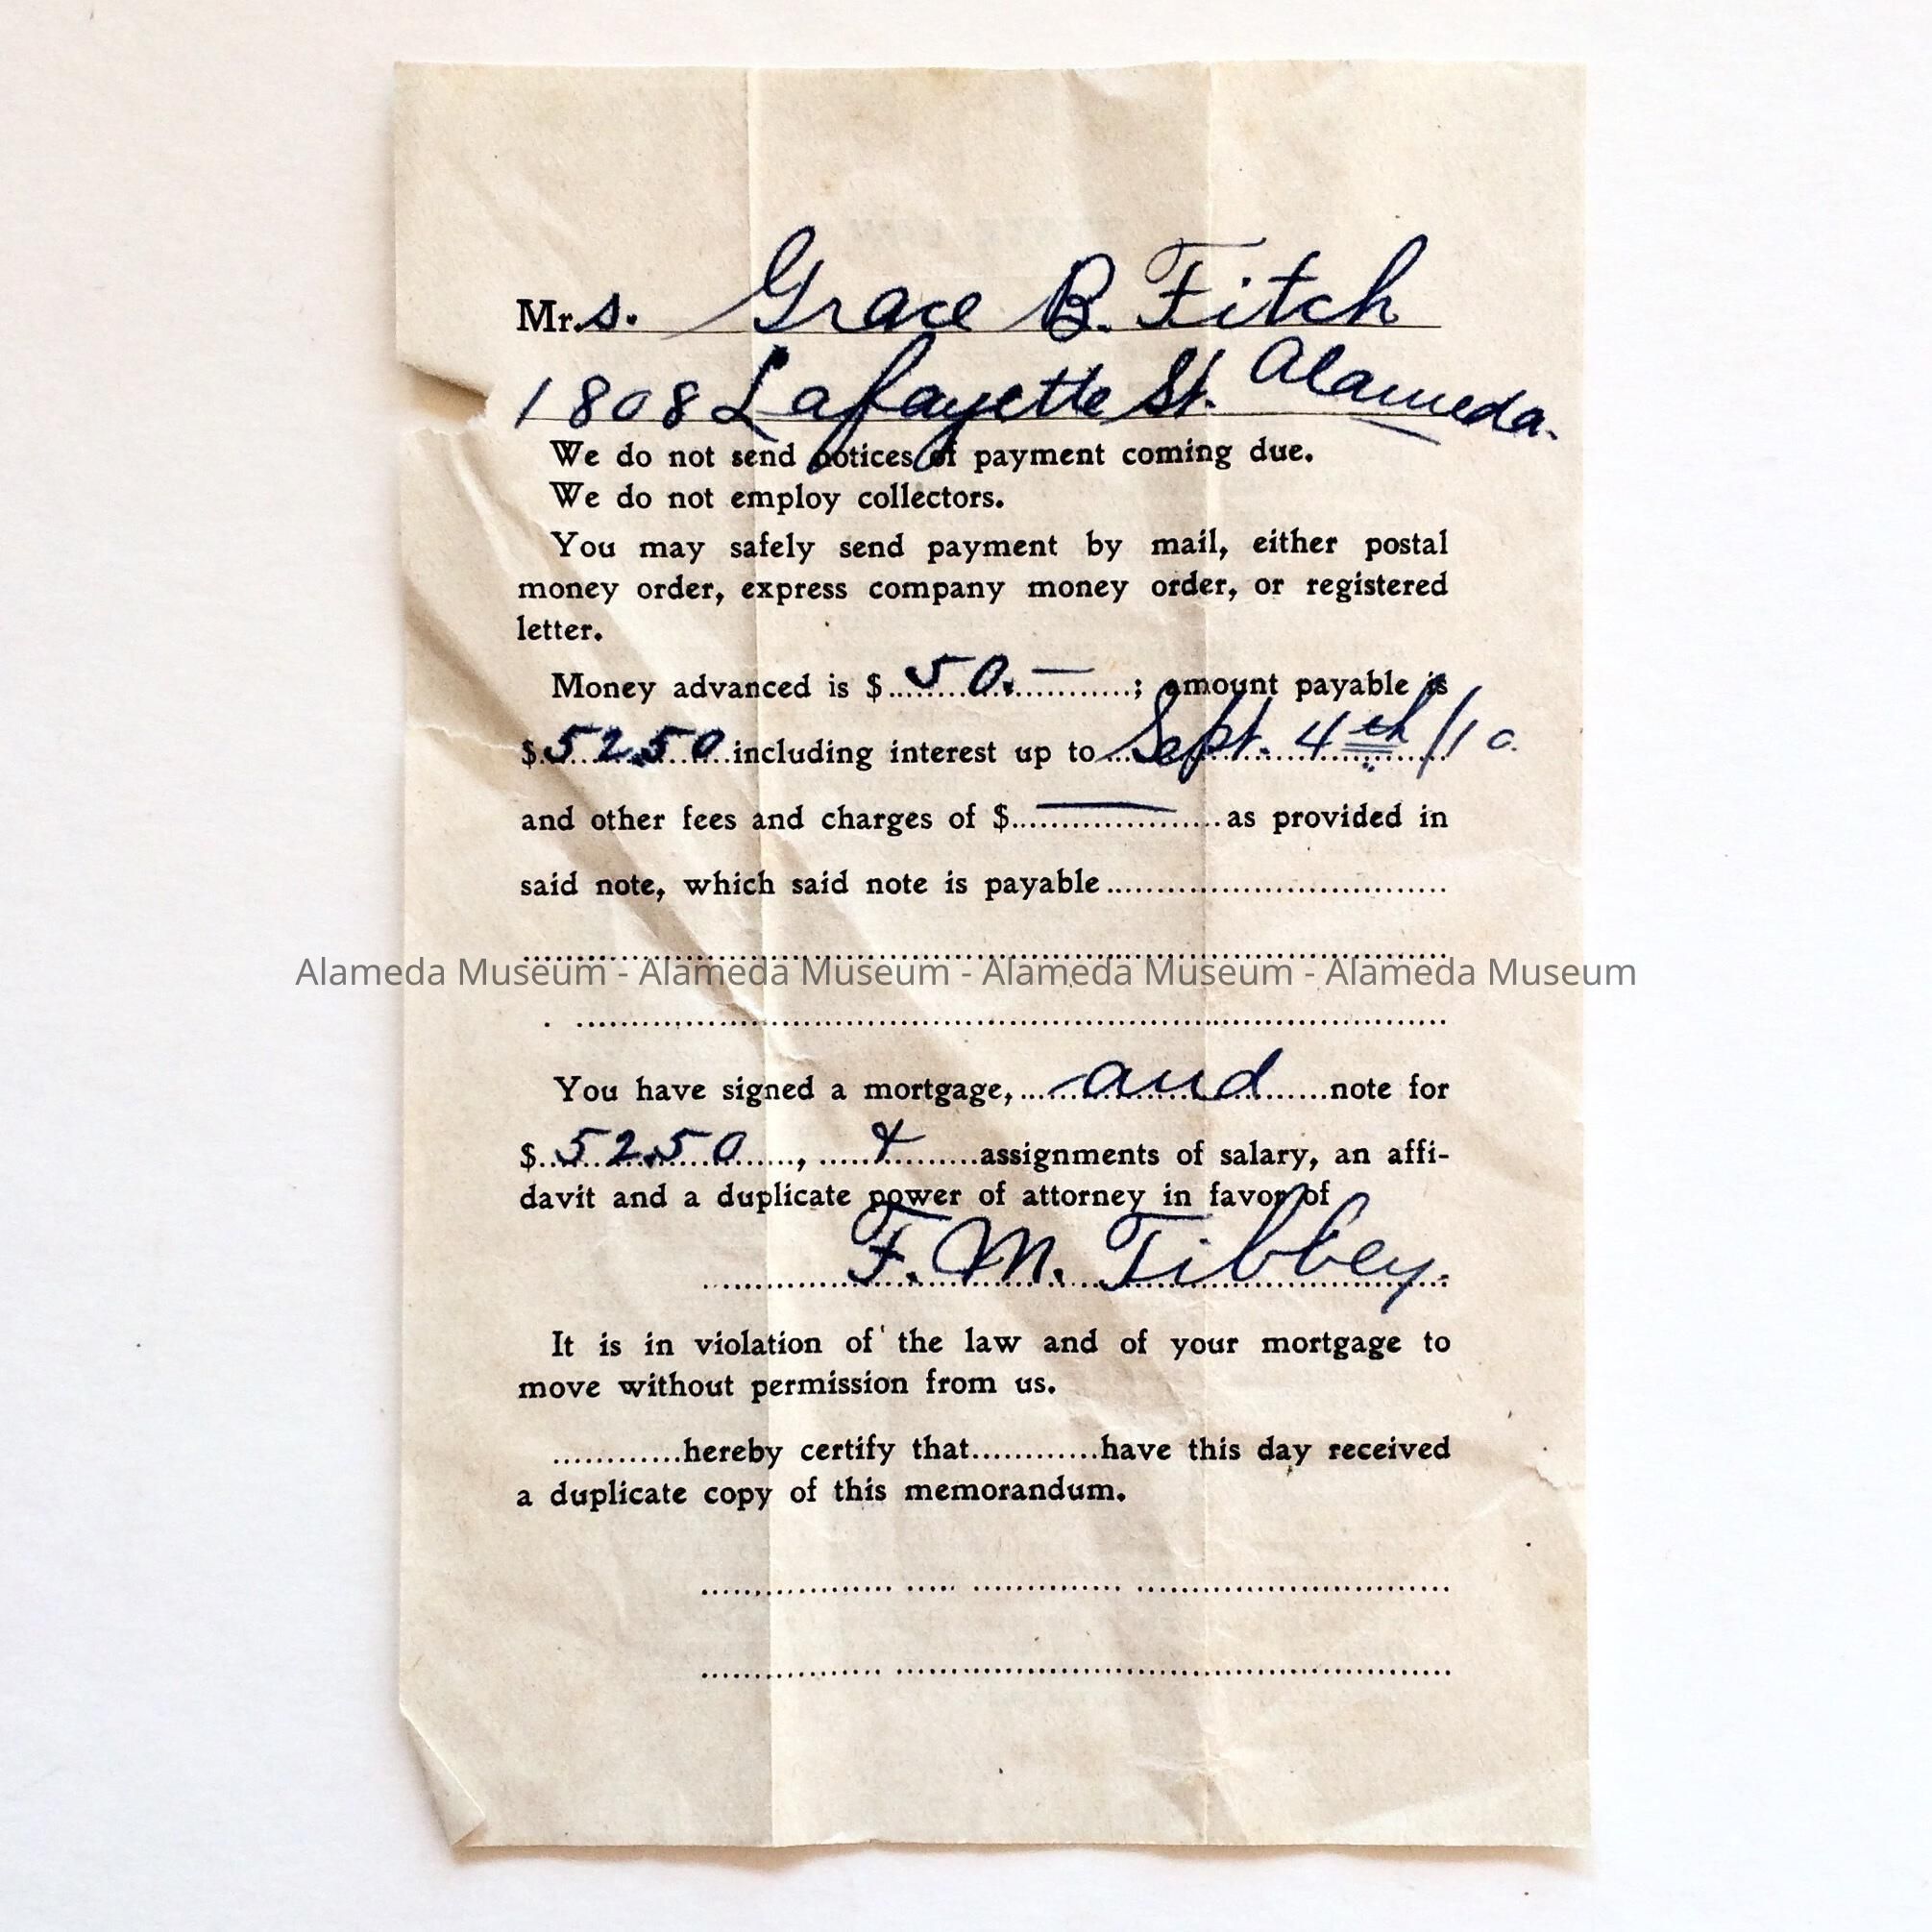 Mr.s. Grace B. Fitch
1808 Lafayette St. Alameda.
We do not send notices of payment coming due.
We do not employ collectors.
You may safely send payment by mail, either postal
money order, express company money order, or registered
letter.
Money advanced is $ 50.— ; amount payable is
$ 52.50 including interest up to Sept. 4th /10.
and other fees and charges of $ — as provided in
said note, which said note is payable
Alameda Museum - Alameda Museum - Alameda Museum - Alameda Museum
You have signed a mortgage, and note for
$ 52.50, & assignments of salary, an affi-
davit and a duplicate power of attorney in favor of
F. M. Tibbey.
It is in violation of the law and of your mortgage to
move without permission from us.
hereby certify that have this day received
a duplicate copy of this memorandum.